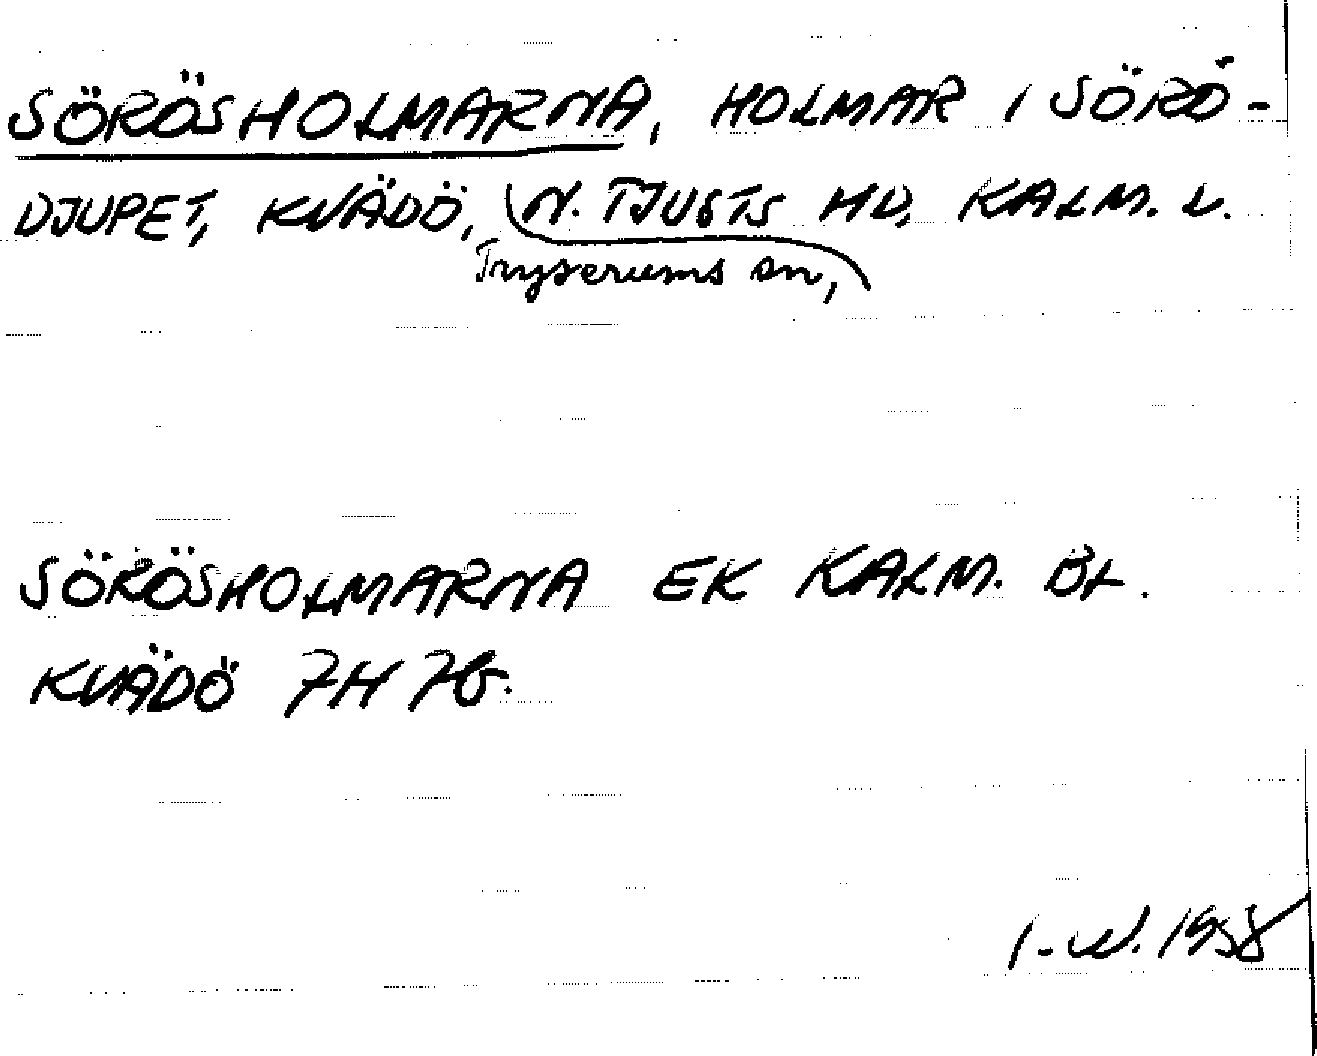 SÖRÖSHOLMARNA, HOLMAR I SÖRÖ-
DJUPET, KVÄDÖ, N. TJUSTS HD, KALM. L.
Tryserums sn,
SÖRÖSHOLMARNA EK KALM. BL.
KVÄDÖ 7H 7b.
I-W. 1958